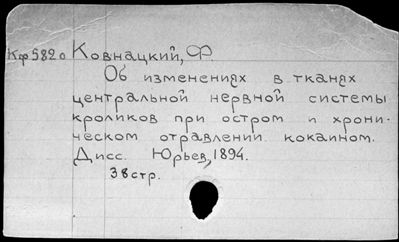 Кф582о Ковнацкий, Ф.
Об изменениях в тканях
центральной нервной системы
кроликов при остром и хрони-
ческом отравлении кокаином.
Дисс. Юрьев, 1894.
38стр.